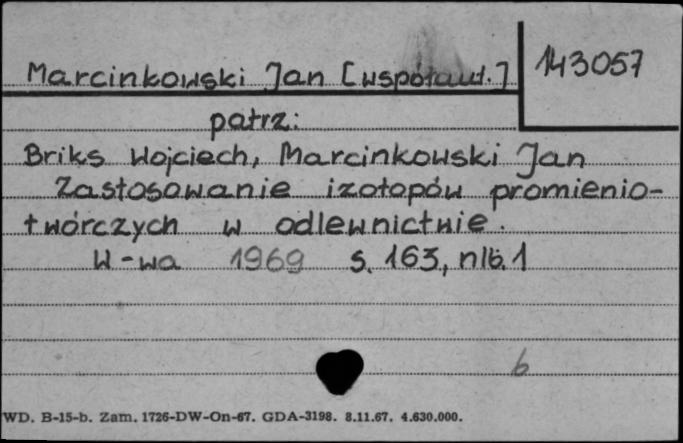 Marcinkowski Jan [współaut.]
143057
patrz:
Briks Wojciech, Marcinkowski Jan
Zastosowanie izotopów promienio-
twórczych w odlewnictwie.
W-wa 1969 s. 163, nlb. 1
b
WD. B-15-b. Zam. 1726-DW-On-67. GDA-3198. 8.11.67. 4.630.000.